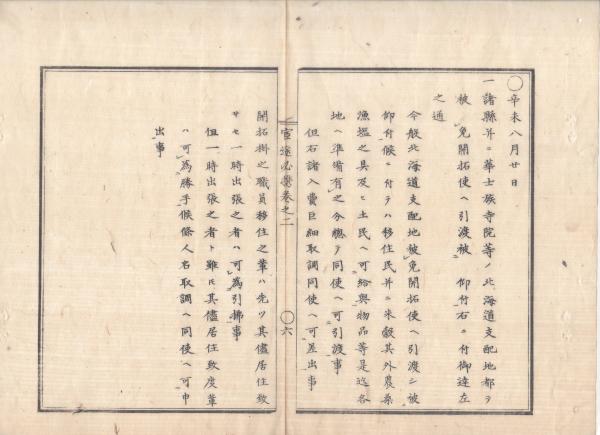 ○辛未八月廿日
一諸縣并ニ華士族寺院等ノ北海道支配地都テ
被　免開拓使ヘ引渡被　仰付右ニ付御達左
之通
今般北海道支配地被　免開拓使ヘ引渡ニ被
仰付候ニ付テハ移住民并ニ米穀其外農桑
漁塩之具及ヒ土民ヘ可給與物品等是迄各
地ヘ準備有之分總テ同使ヘ可引渡事
但右諸入費巨細取調同使ヘ可差出事
宣達必携卷之二
○六
開拓掛之職員移住之輩ハ先ツ其儘居住致
サセ一時出張之者ハ可為引拂事
但一時出張之者ト雖モ其儘居住致度輩
ハ可為勝手候條人名取調ヘ同使ヘ可申
出事